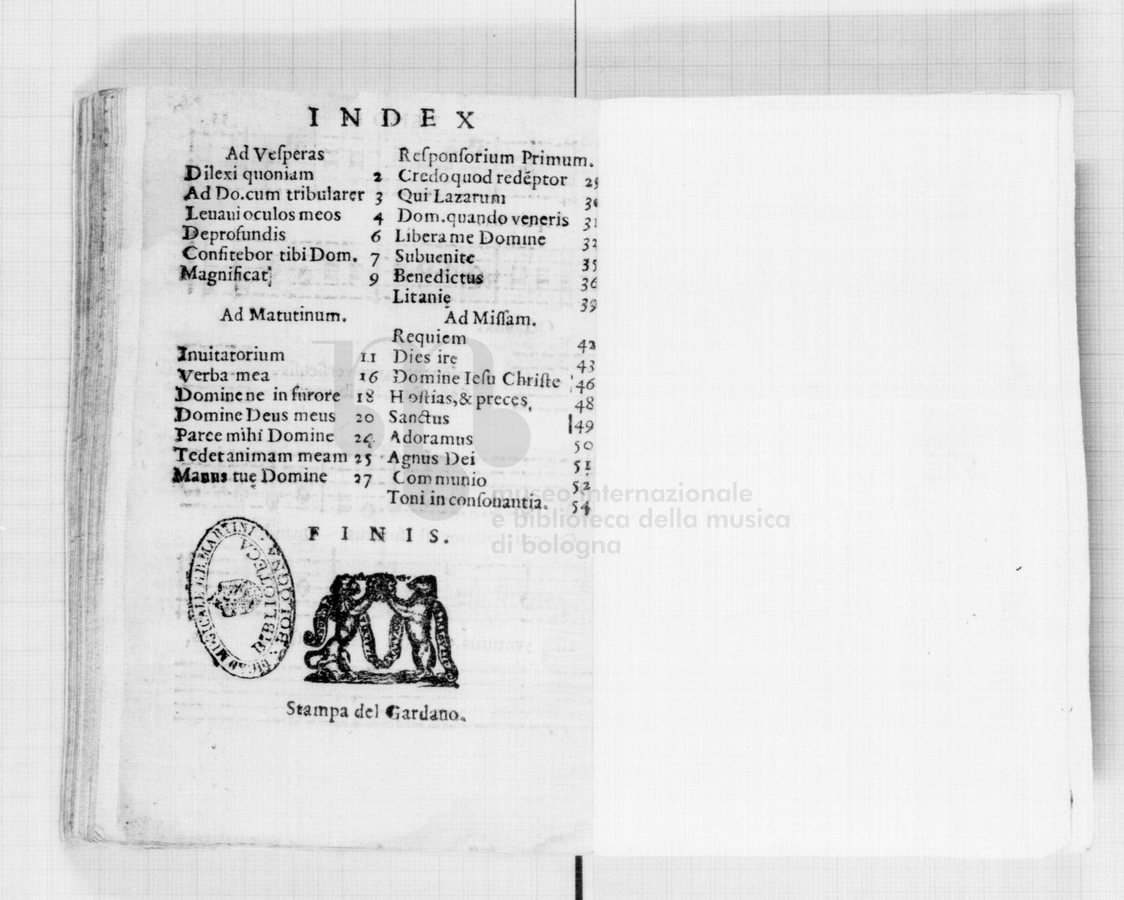 INDEX
Ad Veſperas
Dilexi quoniam 2
Ad Do.cum tribularer 3
Leuaui oculos meos 4
Deprofundis 6
Confitebor tibi Dom. 7
Magnificat 9
Ad Matutinum.
Inuitatorium 11
Verba mea 16
Domine ne in furore 18
Domine Deus meus 20
Parce mihi Domine 24
Tedet animam meam 25
Manus tuę Domine 27
Reſponſorium Primum.
Credo quod redéptor
Qui Lazarum
Dom.quando veneris 31
Libera me Domine 32
Subuenite 35
Benedictus 36
Litanię 39
Ad Miſſam.
Requiem 42
Dies irę 43
Domine Ieſu Chriſte 46
Hoſtias,& preces, 48
Sanctus 49
Adoramus 50
Agnus Dei 51
Communio 52
Toni in conſonantia. 54
FINIS.
BIBLIOTECA
Stampa del Gardano.
museo internazionale
e biblioteca della musica
di bologna